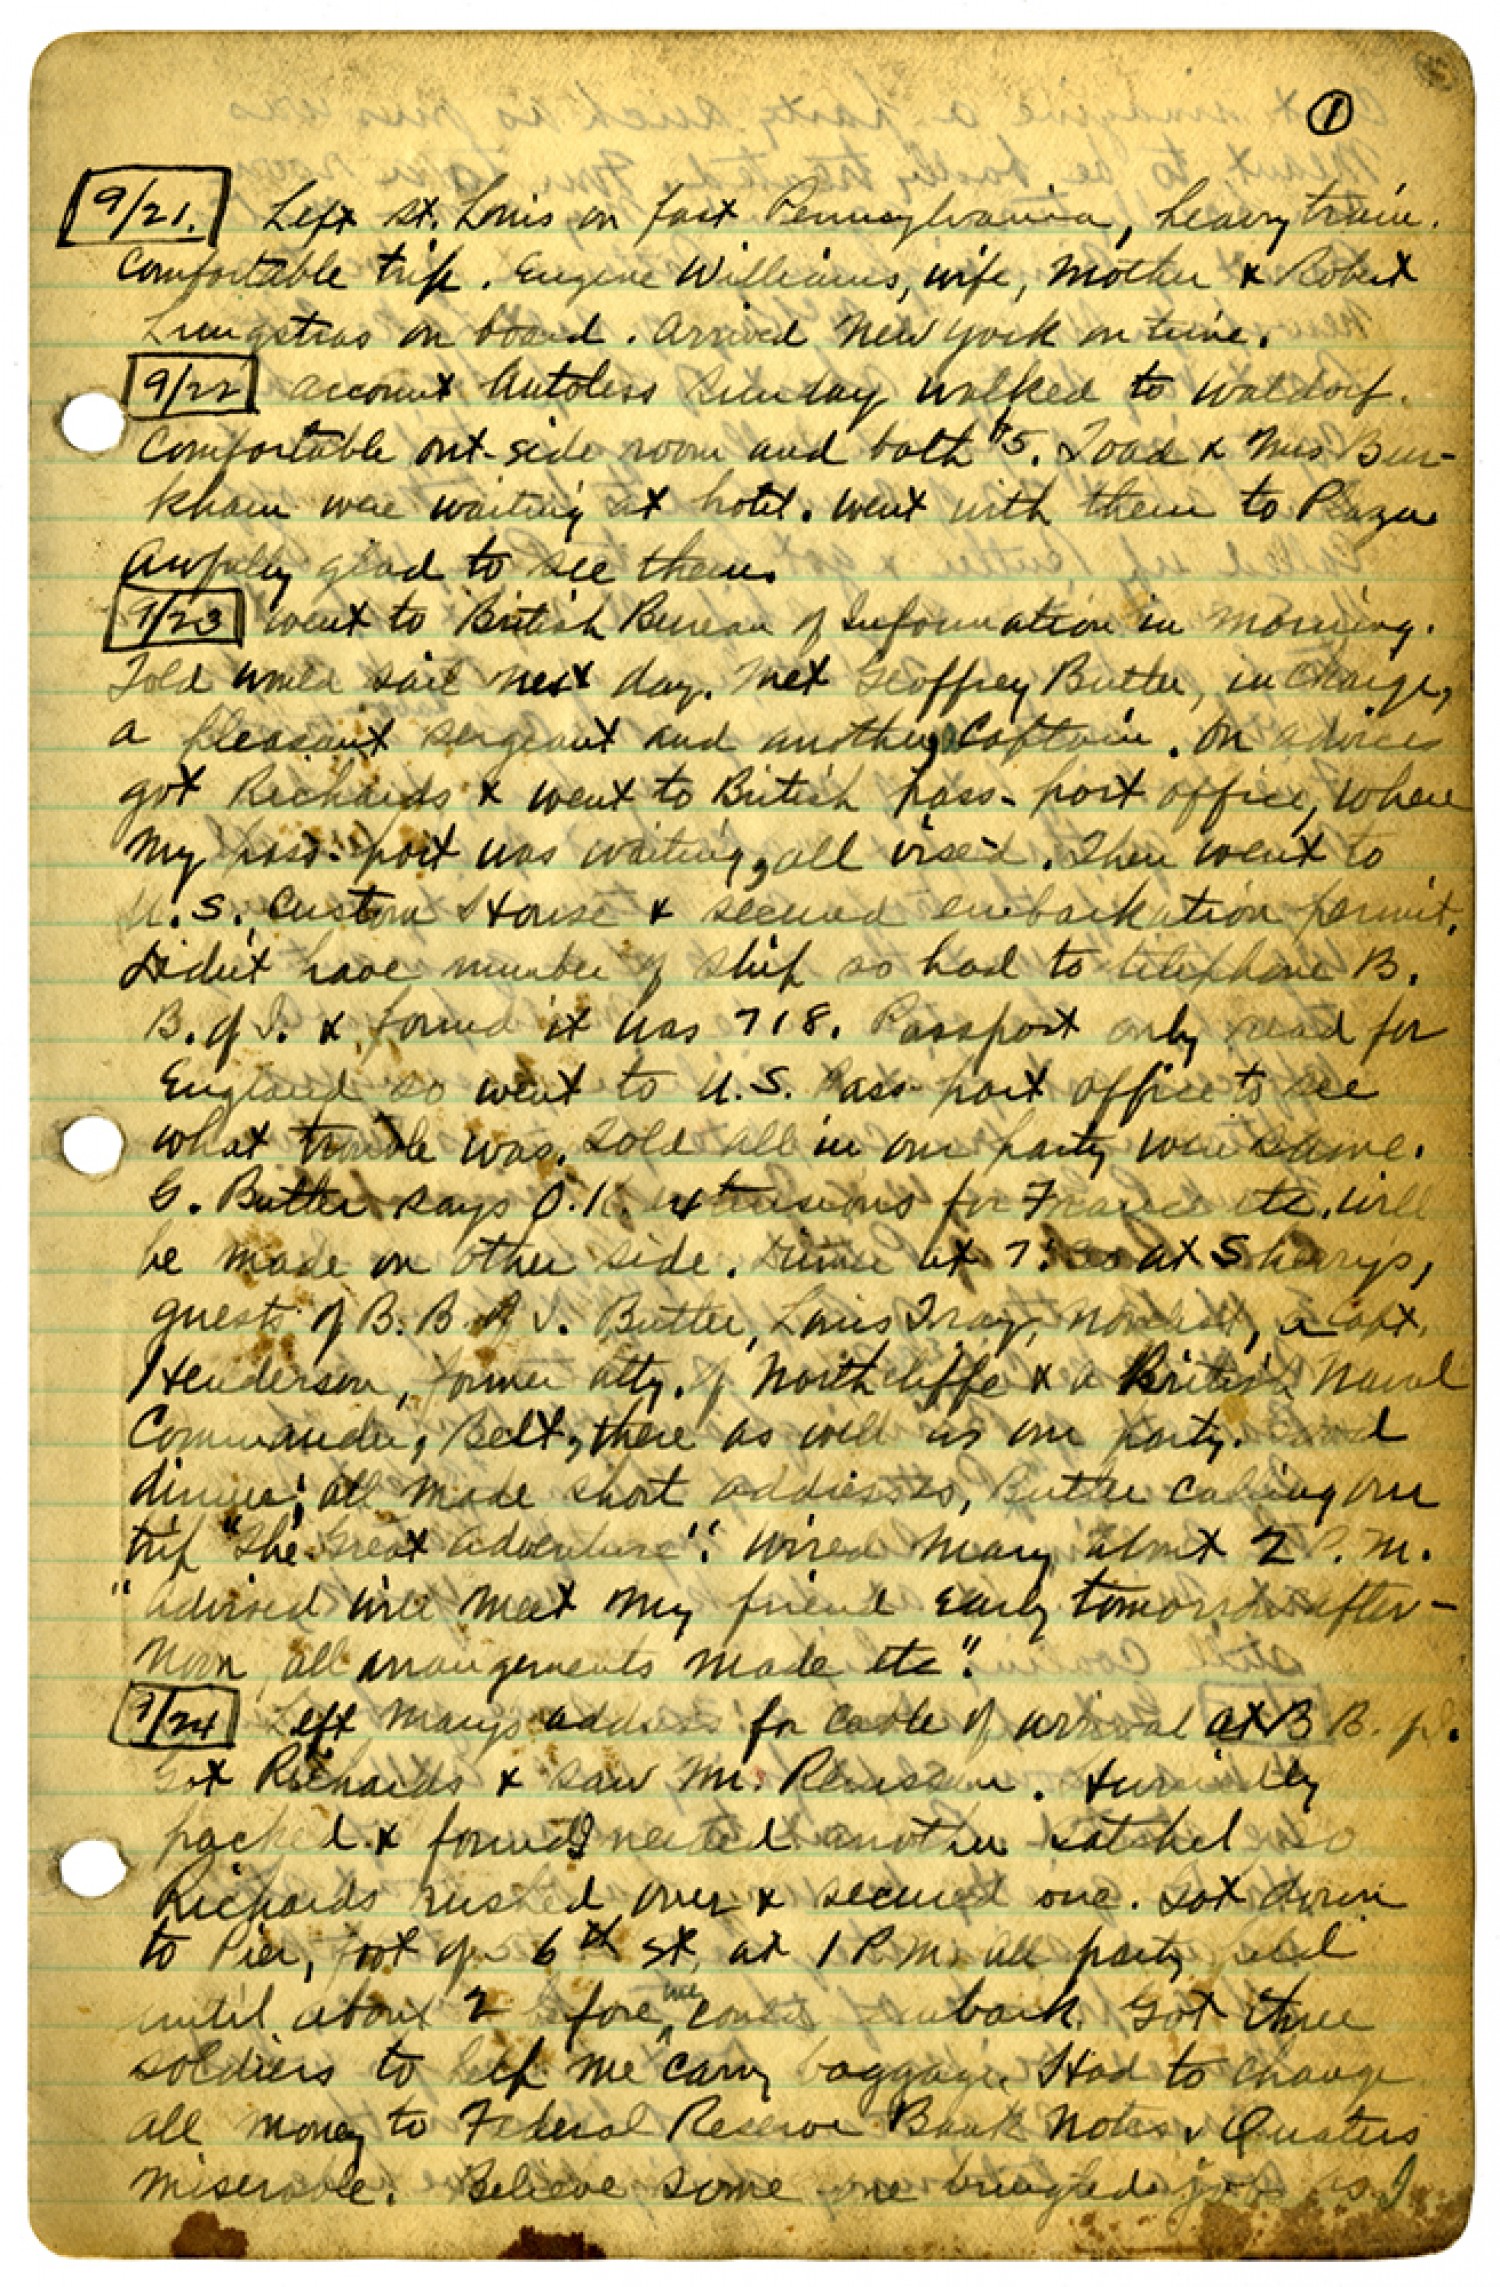 1
9/21. Left St. Louis on fast Pennsylvania, heavy train.
Comfortable trip. Eugene Williams, wife, Mother & Robert
Lungstras on board. Arrived New York on time.
9/22 Account Autoless Sunday walked to Waldorf.
Comfortable out-side room and bath $5. Toad & Mrs Bur-
kham were waiting at hotel. Went with them to Plaza.
Awfully glad to see them.
9/23 Went to British Bureau of Information in morning.
Told would sail next day. Met Geoffrey Butler, in charge,
a pleasant sergeant and another Captain. On advices
got Richards & went to British pass-port office, where
my pass-port was waiting, all viséd. Then went to
U.S. Custom House & secured embarkation permit.
Didn't have number of ship so had to telephone B.
B. of I. & found it was 718. Passport only read for
England so went to U.S. Pass-port office to see
what trouble was. Told all in our party were same.
G. Butler says O.K. extensions for France etc. will
be made on other side. Dinner at 7:30 at Sherry's,
guests of B.B of I. Butler, Louis Tracy, Novelist, a Capt.
Henderson, former atty. of Northcliffe & a British Naval
Commander, Belt, there as well as our party. Good
dinner; all made short addresses, Butler calling our
trip "The Great Adventure". Wired Mary about 2 P.M.
"Advised will meet my friend early tomorrow after-
noon, all arrangements made etc".
9/24 Left Mary's address for cable of arrival at B B. of I.
Got Richards & saw Mr. Hurriedly
packed & found I needed another satchel so
Richards rushed over & secured one. Got down
to Pier, foot of 6th St, at 1 P.M. All party held
until about 2 before we could embark. Got three
soldiers to help me carry baggage. Had to change
all money to Federal Reserve Bank Notes. Quarters
miserable. Believe some one bungled job as I